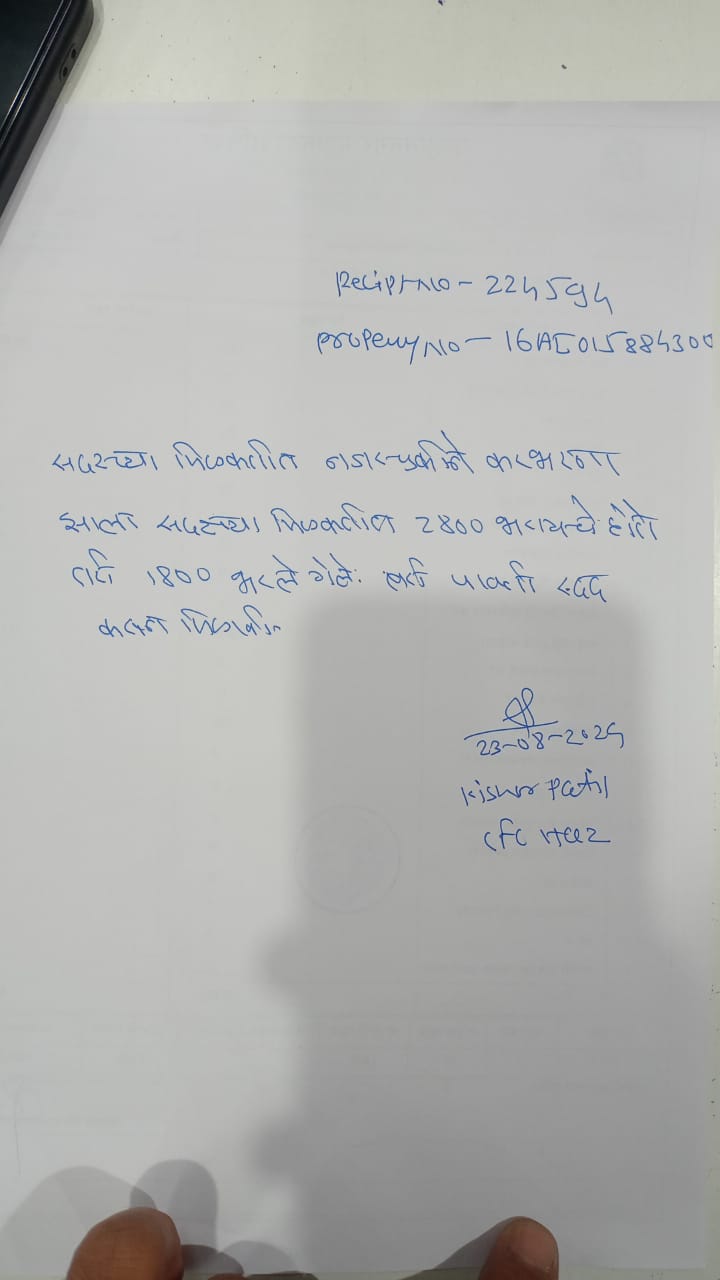 Recipt No - 224594
Propeny No - 16AE015884300
सदरच्या मिळकतीत नजरचुकीने कर भरणा
झाला सदरच्या मिळकतीत 2800 भरायचे होते
1800 भरले गेले. पावती रद्द
करून मिळावी.
23-08-2025
Kishor Patil
CFC